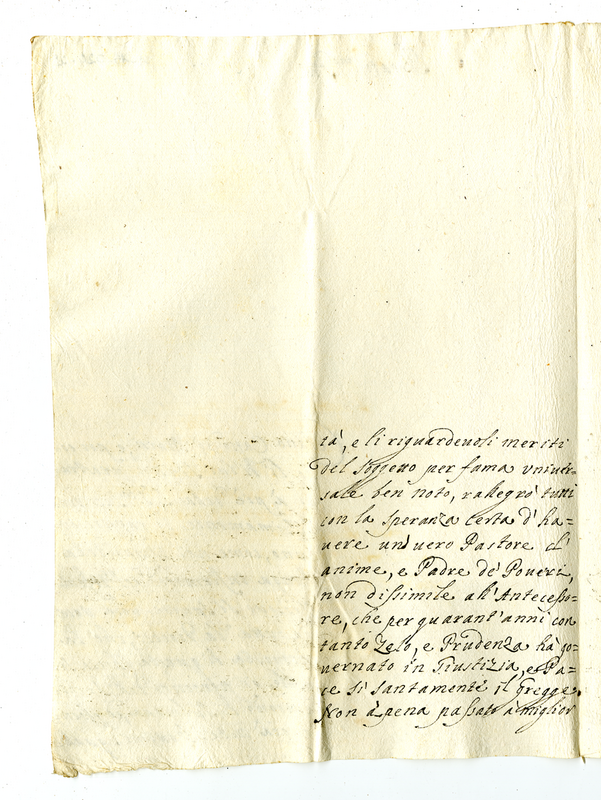 tà, e li riguardevoli meriti
del Soggetto per fama univer=
sale ben noto, rallegrò tutti
con la speranza certa d'ha=
vere un vero Pastore d'
anime, e Padre de' Poveri,
non dissimile all'Antecesso=
re, che per quarant'anni con
tanto Zelo, e Prudenza hà go=
vernato in Giustizia, e Pa=
ce sì santamente il gregge.
Non à pena passato à miglior